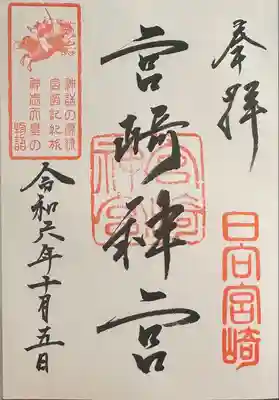 奉拝
日向宮崎
宮崎神宮
宮崎
神宮
神話の源流
宮崎記紀旅
神武天皇の
物語
令和六年十月五日